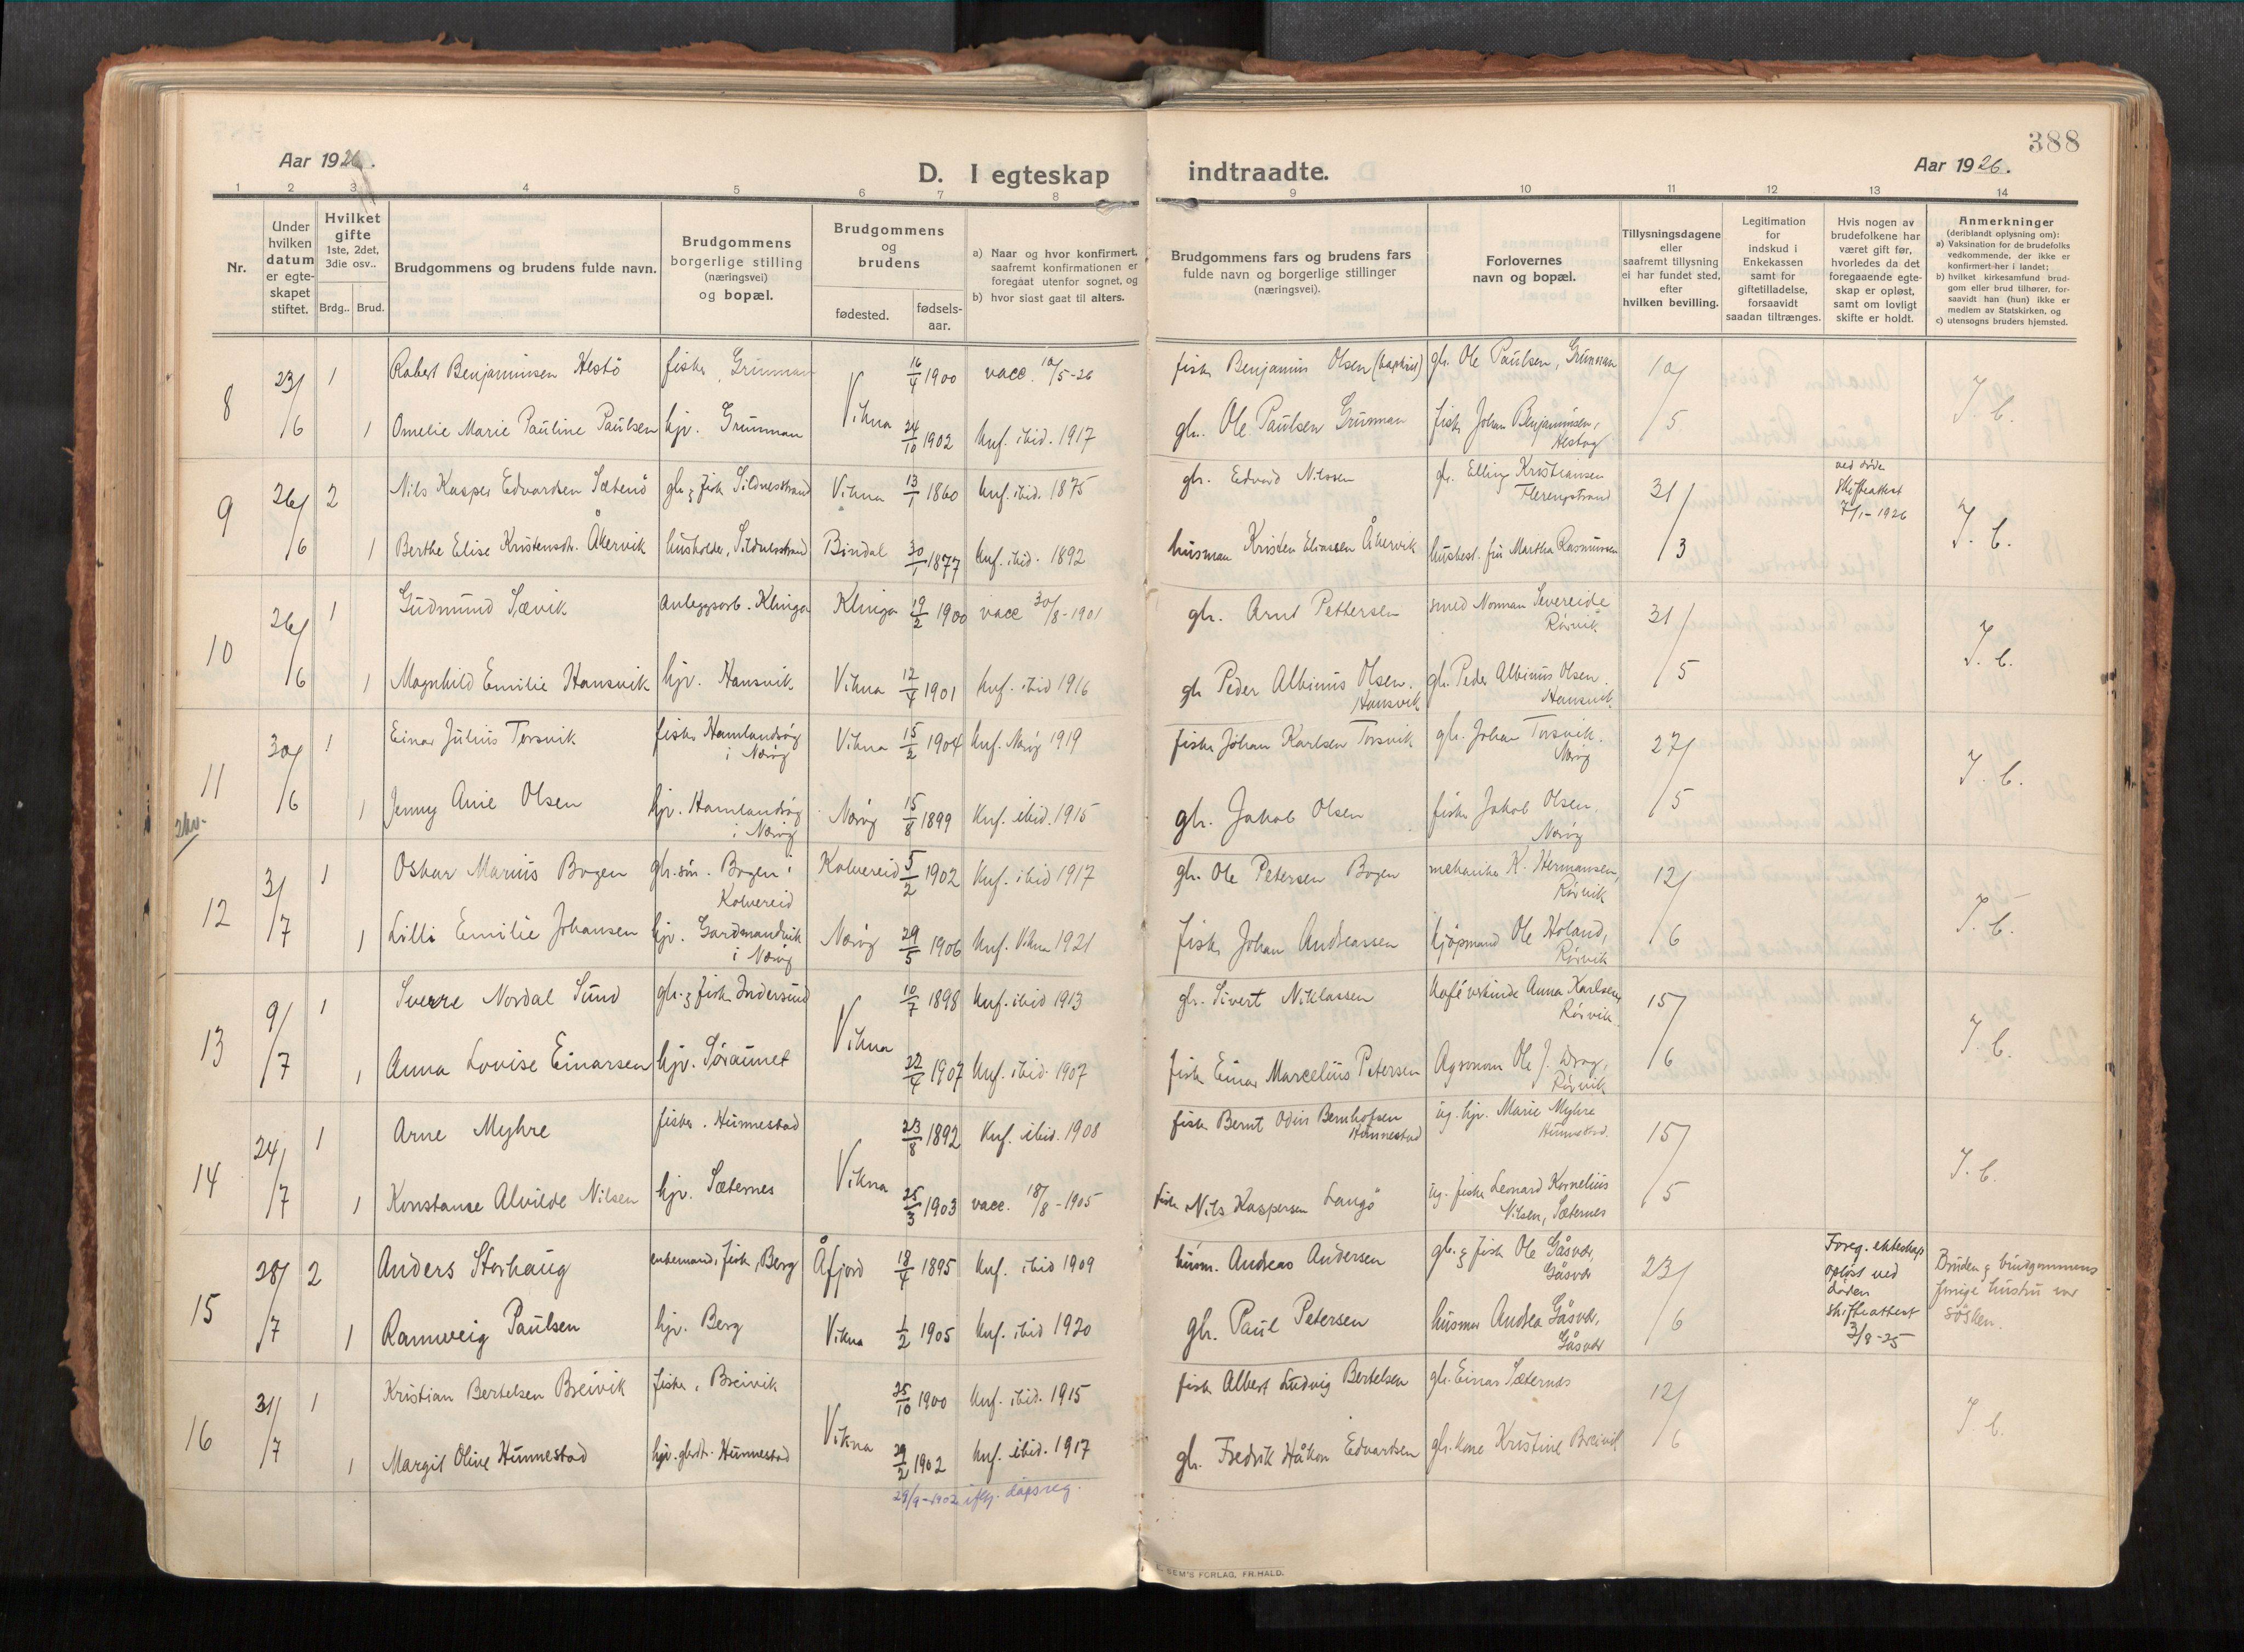 388
Aar 1926.
D. I egteskap indtraadte.
Aar 1926.
1 2 3 4 5 6 7 8 9 10 11 12 13 14
Nr.
Under hvilken datum er egte-skapet stiftet.
Hvilket gifte
1ste, 2det, 3die osv..
Brdg.. Brud.
Brudgommens og brudens fulde navn.
Brudgommens borgerlige stilling (næringsvei) og bopæl.
Brudgommens og brudens
fødested.
fødsels-aar.
a) Naar og hvor konfirmert, saafremt konfirmationen er foregaat utenfor sognet, og
b) hvor sidst gaat til alters.
Brudgommens fars og brudens fars fulde navn og borgerlige stillinger (næringsvei).
Forlovernes navn og bopæl.
Tillysningsdagene eller saafremt tillysning ei har fundet sted, efter hvilken bevilling.
Legitimation for indskud i Enkekassen samt for giftetilladelse, forsaavidt saadan tiltrænges.
Hvis nogen av brudefolkene har været gift før, hvorledes da det foregaaende egte-skap er opløst, samt om lovligt skifte er holdt.
Anmerkninger
(deriblandt oplysning om):
a) Vaksination for de brudefolks vedkommende, der ikke er konfirmert her i landet;
b) hvilket kirkesamfund brud-gom eller brud tilhører, for-saavidt han (hun) ikke er medlem av Statskirken, og
c) utensogns bruders hjemsted.
8 23/6 1 Robert Benjaminsen Hestö fisker, Grunman Vikna 16/4 1900 vacc. 10/5-26 fisker Benjamin Olsen (baptist) gbr. Ole Paulsen, Grunman 10/5 I. b.
1 Omelie Marie Pauline Paulsen hjv. Grunman 24/10 1902 Knf. ibid. 1917 gbr. Ole Paulsen Grunman fisker Johan Benjaminsen, Hestøy
9 26/6 2 Nils Kasper Edvardsen Sætenö gbr & fisk Sildnesstrand Vikna 13/1 1860 Knf. ibid. 1875 gbr. Edvard Nilssen gbr. Elling Kristiansen Flerengstrand 31/3 ved døde skifteattest 7/1-1926 I. b.
1 Berthe Elise Kristensdtr. Åkervik husholder, Sildnesstrand Bindal 30/1 1877 Knf. ibid. 1892 husman Kristen Eliassen Åkervik husbest. fru Martha Rasmussen
10 26/6 1 Gudmund Sævik Anleggsarb. Klinga Klinga 19/2 1900 vacc 30/8-1901 gbr. Arnt Pettersen smed Norman Severeide Rørvik 31/5 I. b.
1 Magnhild Emilie Hansvik hjv. Hansvik Vikna 12/4 1901 Knf. ibid 1916 gbr Peder Albinus Olsen. Hansvik gbr. Peder Albinus Olsen. Hansvik
11 30/6 1 Einar Julius Torsvik fisker Hamlandsøy i Nærøy Vikna 15/2 1904 Knf. Nærøy 1919 fisker Johan Karlsen Torsvik gbr. Johan Torsvik. Nærøy 27/5 I. b.
1 Jenny Anie Olsen hjv. Hamlandsøy i Nærøy Nærøy 15/8 1899 Knf. ibid. 1915 gbr. Jakob Olsen fisker Jakob Olsen. Nærøy
12 3/7 1 Oskar Marius Bogen gbr.søn. Bogen i Kolvereid Kolvereid 5/2 1902 Knf. ibid 1917 gbr. Ole Petersen Bogen mekaniker K. Hermansen, Rørvik 12/6 I. b.
1 Lilli Emilie Johansen hjv. Gardmandvik i Nærøy Nærøy 29/5 1906 Knf. Vikna 1921 fisker Johan Andreassen kjøpmand Ole Holand, Rørvik
13 9/7 1 Sverre Nordal Sund gbr. & fisker Indersund Vikna 10/7 1898 Knf. ibid 1913 gbr. Sivert Niklassen Kafévertinde Anna Karlsen, Rørvik. 15/6 I. b.
1 Anna Lovise Einarsen hjv. Søraunet 22/4 1907 Knf. ibid. 1907 fisker Einar Marcelius Petersen Agronom Ole J. Drag, Rørvik
14 24/7 1 Arne Myhre fisker. Hunnestad Vikna 23/8 1892 Knf. ibid. 1908 fisker Bernt Odin Bernhofsen Hunnestad ug. hjv. Marie Myhre Hunnestad. 15/5 I. b.
1 Konstanse Alvilde Nilsen hjv. Sæternes 25/3 1903 vacc. 18/8-1905 fisker Nils Kaspersen Langö ug. fisker Leonard Kornelius Nilsen, Sæternes
15 28/7 2 Anders Storhaug enkemand, fisker, Berg Åfjord 18/4 1895 Knf. ibid 1909 husm. Andreas Andersen gbr. & fisk Ole Gåsvær, Gåsvær 23/6 Foreg. ekteskap opløst ved døden skifteattest 3/8-25 Bruden & brudgommens forrige hustru var søsken.
1 Rannveig Paulsen hjv. Berg Vikna 1/2 1905 Knf. ibid 1920 gbr. Paul Petersen husmor Andrea Gåsvær, Gåsvær
16 31/7 1 Kristian Bertelsen Breivik fisker, Breivik Vikna 25/10 1900 Knf. ibid. 1915 fisker Albert Ludvig Bertelsen gbr. Einar Sæternes 12/6 I. b.
1 Margit Olive Hunnestad hjv. gbrdtr. Hunnestad 29/2 1902 Knf. ibid. 1917 gbr. Fredrik Håkon Edvardsen gbr. kone Kristine Breivik
29/9-1902 iflg. dåpsreg.
SEM'S FORLAG, FR.HALD.